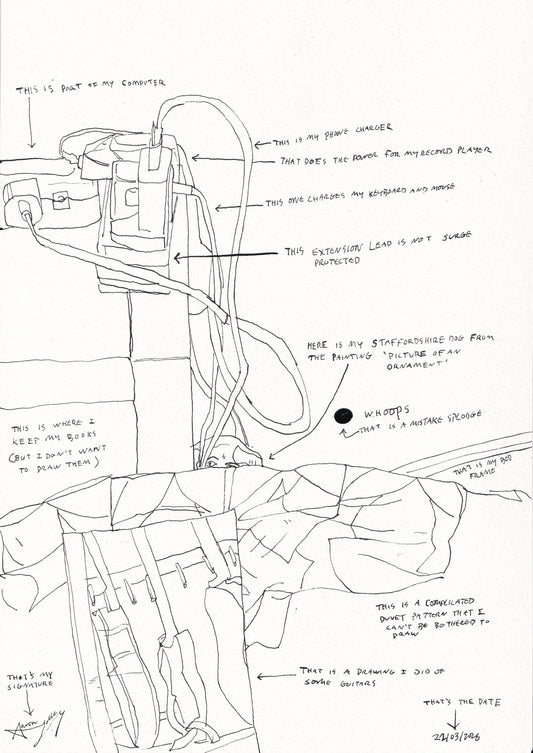 THIS IS PART OF MY COMPUTER
THIS IS MY PHONE CHARGER
THAT DOES THE POWER FOR MY RECORD PLAYER
THIS ONE CHARGES MY KEYBOARD AND MOUSE
THIS EXTENSION LEAD IS NOT SURGE
PROTECTED
HERE IS MY STAFFORDSHIRE DOG FROM
THE PAINTING 'PICTURE OF AN
ORNAMENT'
WHOOPS
THAT IS A MISTAKE SPLODGE
THIS IS WHERE I
KEEP MY BOOKS
(BUT I DON'T WANT
TO DRAW THEM)
THAT IS MY BED
FRAME
THIS IS A COMPLICATED
DUVET PATTERN THAT I
CAN'T BE BOTHERED TO
DRAW
THAT IS A DRAWING I DID OF
SOME GUITARS
THAT'S MY
SIGNATURE
THAT'S THE DATE